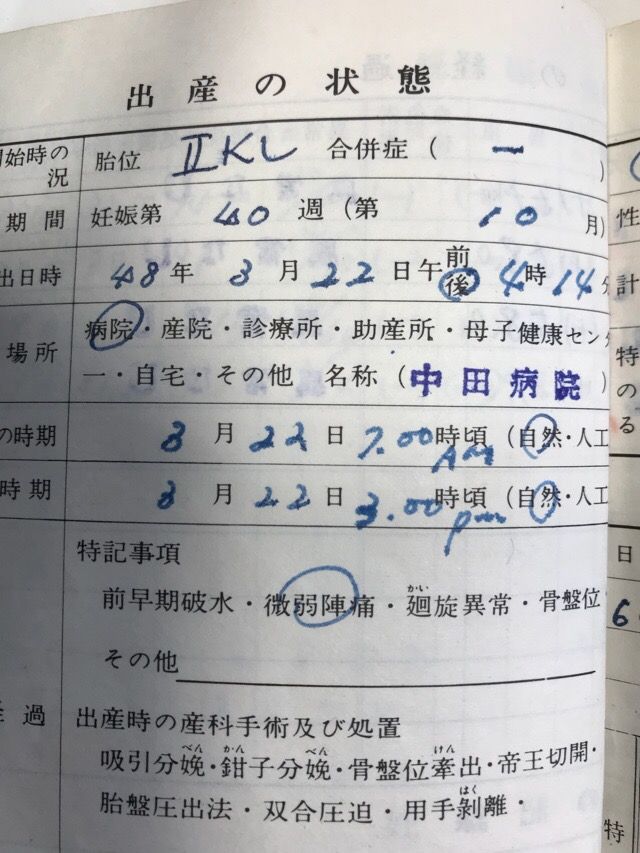 出産の状態
始時の 胎位 ⅡKL 合併症 ( ー )
況
期間 妊娠第 40 週 (第 10 月)
出日時 48年 3月22日午前後 4時14分
病院・産院・診療所・助産所・母子健康セン
場所
ー・自宅・その他 名称 (中田病院)
の時期 3月22日 7.00時頃 (自然・人工
AM
時期 3月22日 3.00時頃 (自然・人工
pm
特記事項
前早期破水・微弱陣痛・廻旋異常・骨盤位
かい
その他
過 出産時の産科手術及び処置
吸引分娩・鉗子分娩・骨盤位牽出・帝王切開・
べん かん べん けん
胎盤圧出法・双合圧迫・用手剝離・
はく
性
計
特
の
る
日
6
特